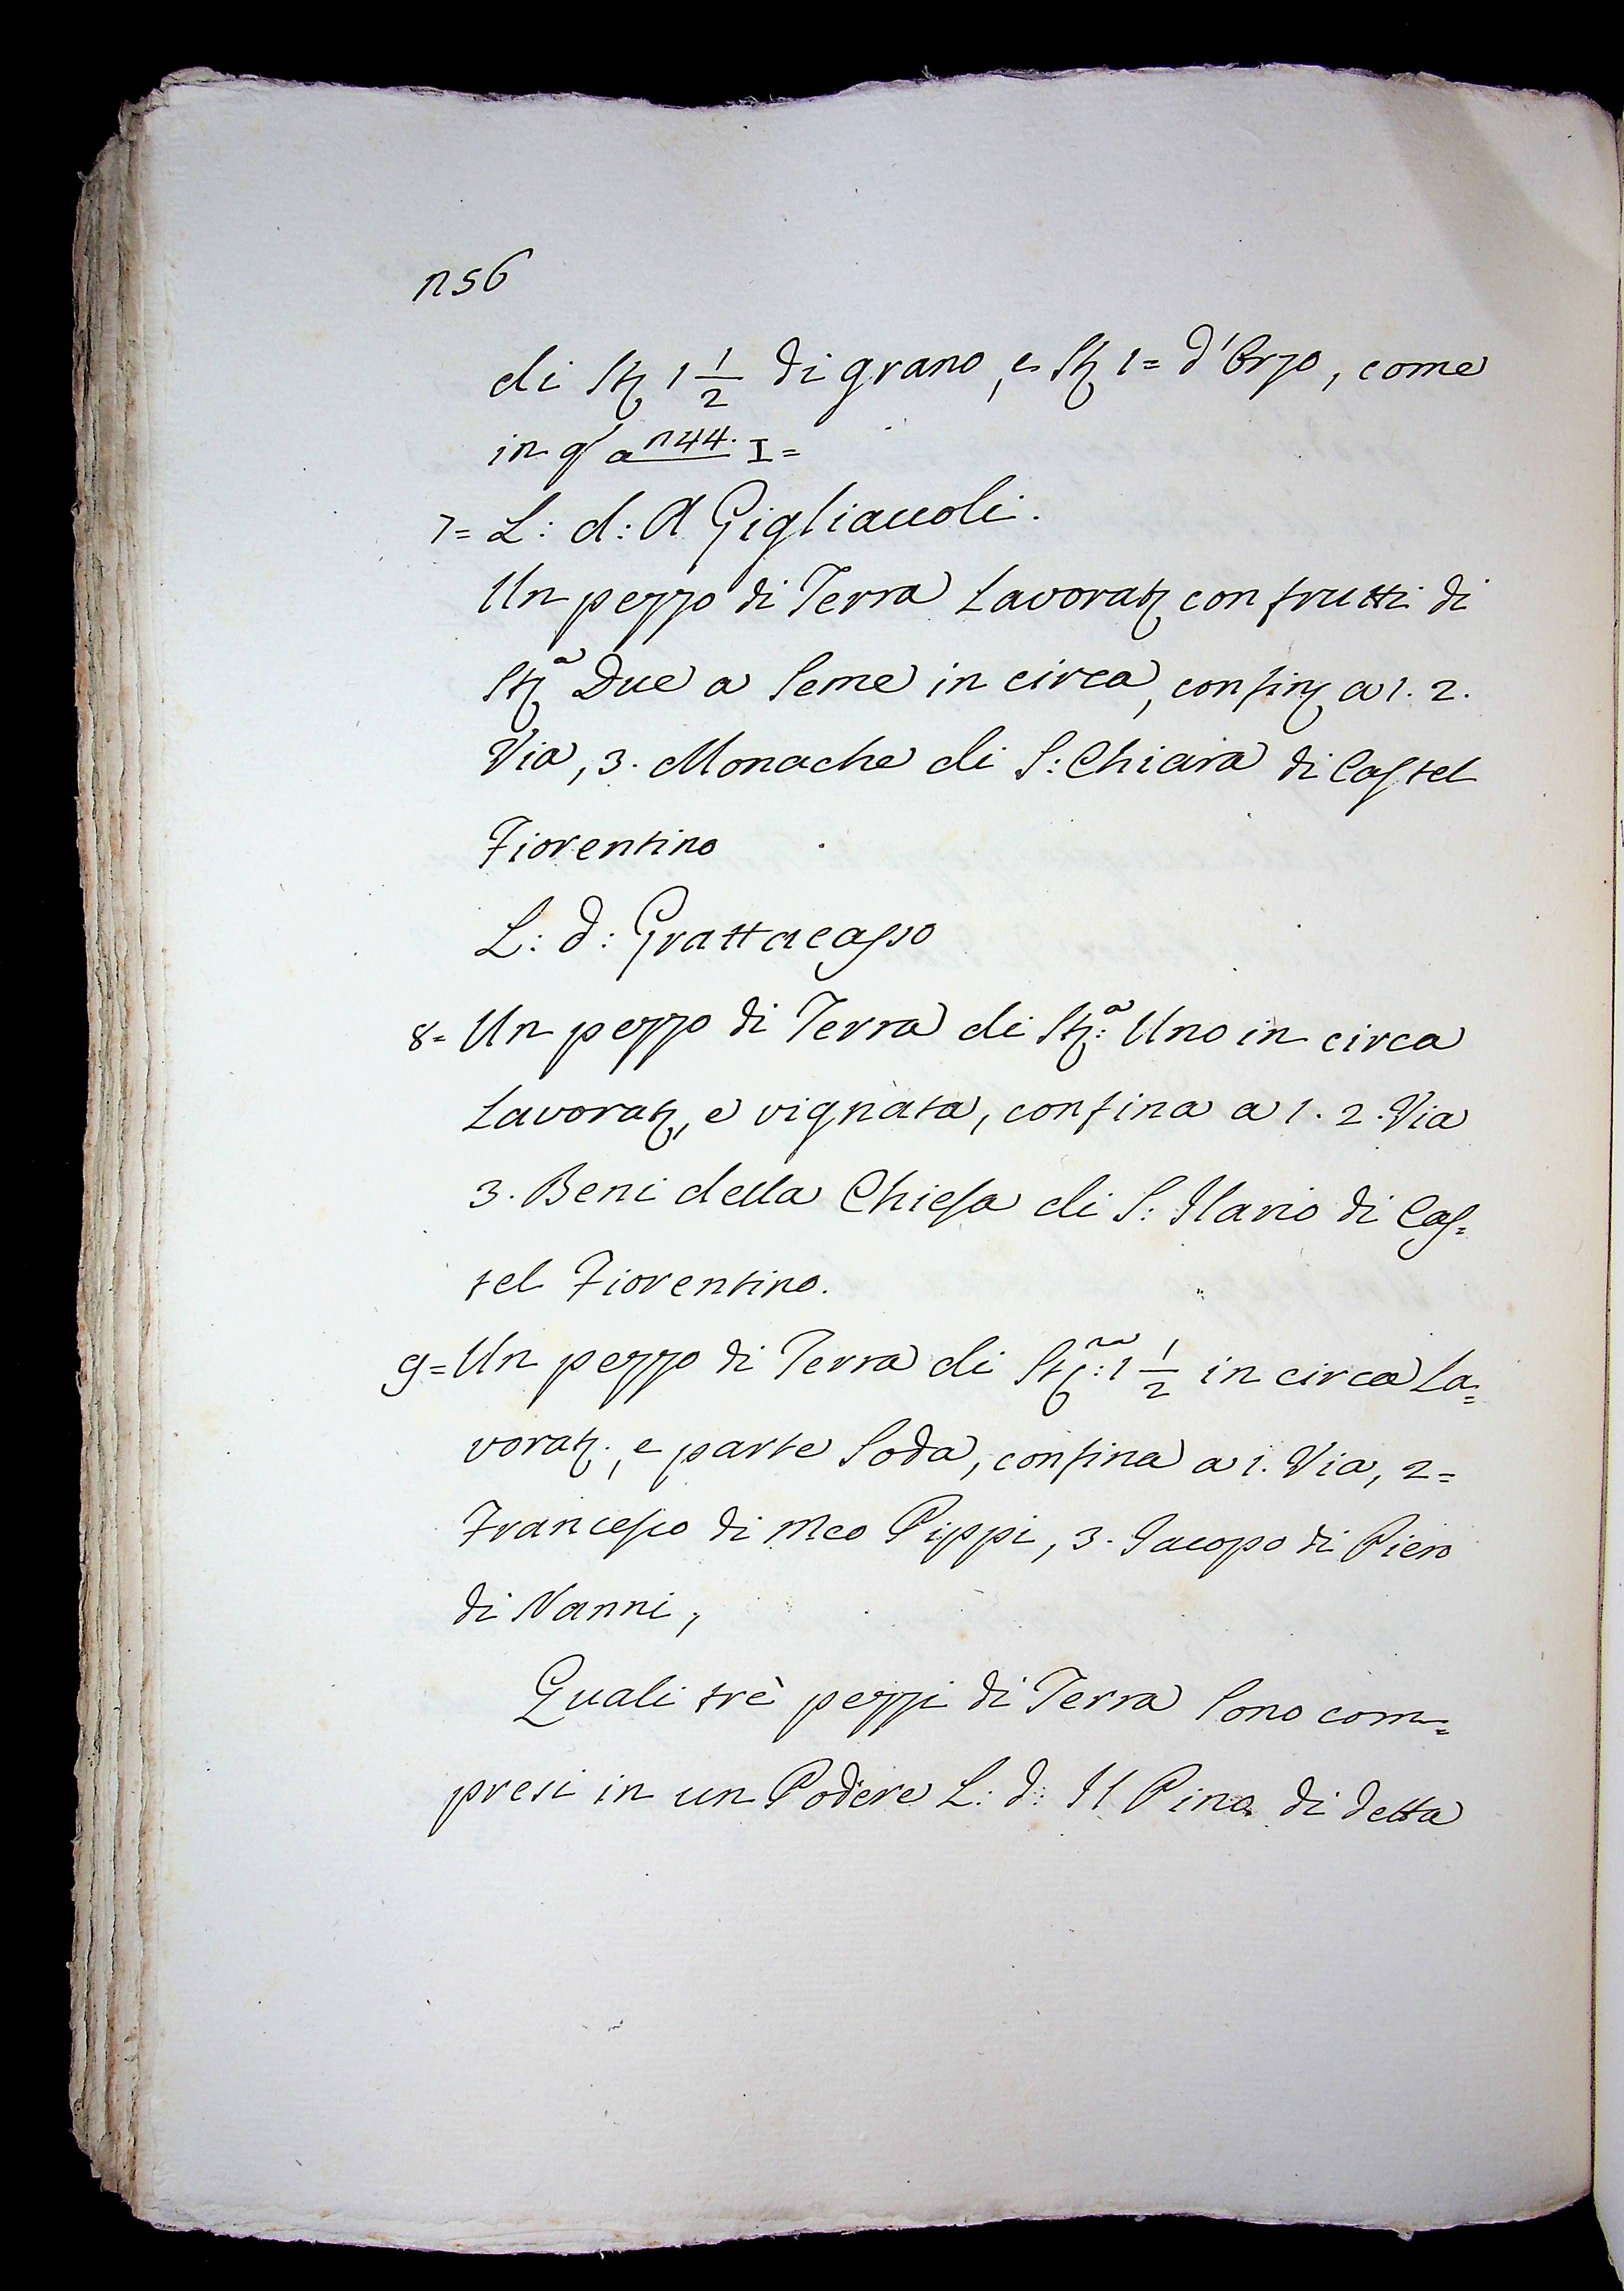 n56
di St 1 1/2 di grano, e St 1= d'Orzo, come
in q a n44. I=
7= L: d: A Gigliaccoli.
Un pezzo di Terra Lavorat con frutti di
Sta Due a Seme in circa, confin a 1. 2.
Via, 3. Monache di S: Chiara di Castel
Fiorentino
L: d: Grattacasso
8= Un pezzo di Terra di St:a Uno in circa
Lavorat, e vignata, confina a 1. 2. Via
3. Beni della Chiesa di S: Ilario di Cas=
tel Fiorentino.
9= Un pezzo di Terra di St:ra 1 1/2 in circa La=
vorat:, e parte Soda, confina a 1. Via, 2=
Francesco di Meo Pippi, 3. Jacopo di Piero
di Nanni,
Quali trè pezzi di Terra Sono com=
presi in un Podere L: d: Il Pino di detta